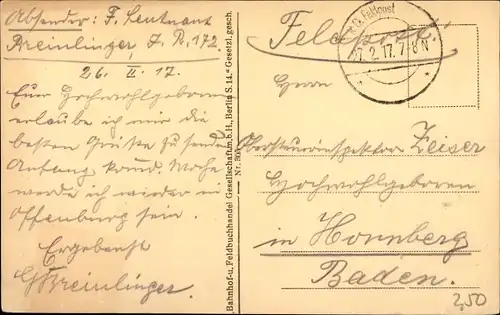 Absender: F. Leutnant
Breinlinger, J. R. 172.
26. II. 17.
Euer Hochwohlgeboren
erlaube ich mir die
besten Grüße zu senden
Anfang komd. Woche
werde ich wieder in
Offenburg sein.
Ergebenst
Breinlinger.
Bahnhof-u. Feldbuchhandel Gesellschaft m.b.H., Berlin S.14. Gesetzl. gesch.
Feldpost.
Feldpost
2.17.7-8N
Herrn
Obersteuerinspektor Zeiser
Hochwohlgeboren
in Hornberg
Baden.
2,50